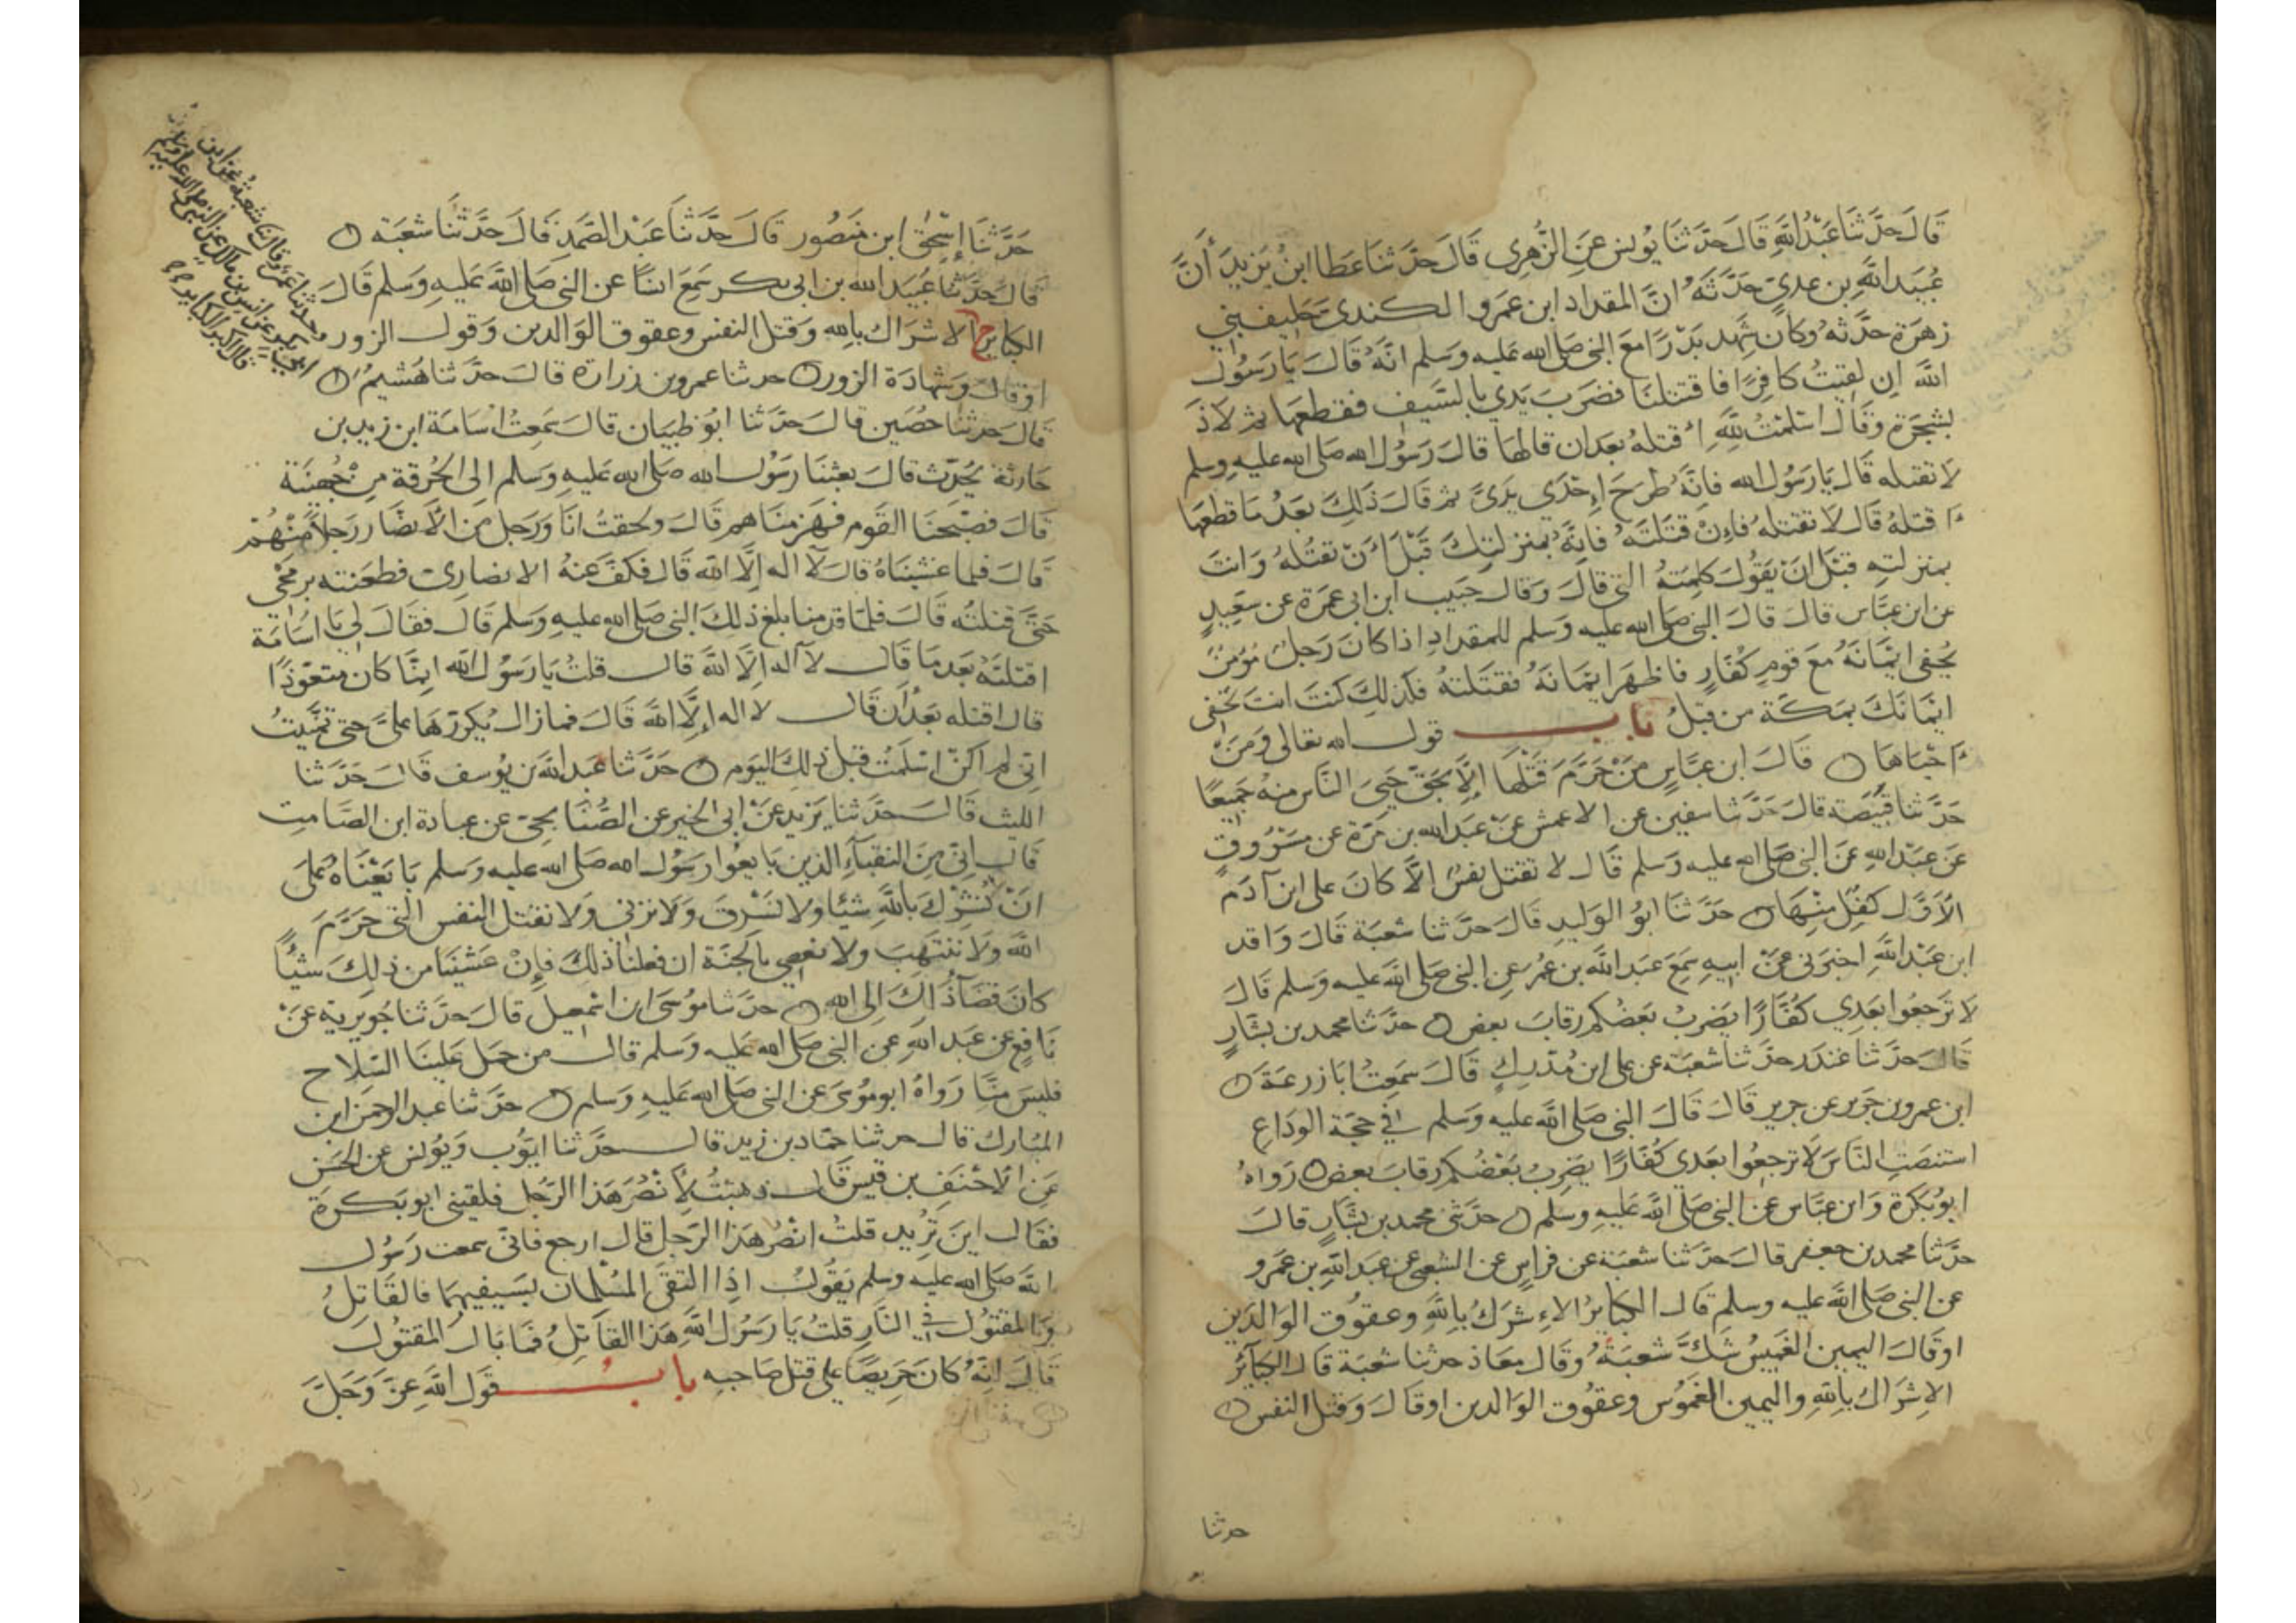 قَالَ حَدَّثَنَا عَبْدُ اللَّهِ قَالَ حَدَّثَنَا يُونس عَنِ الزُّهرِي قَالَ حَدَّثَنَا عَطَا ابنُ يَزِيدَ أَنَّ
عُبَيدَ اللَّهِ بن عدي حَدَّثَهُ انَّ المقداد ابن عمرو الكندي حَليف بني
زهرة حَدَّثه وكان شهد بدرًا مع النبي صلى الله عليه وسلم انَّهُ قالَ يَا رَسُولَ
اللَّه ان لقيتُ كافِرًا فاقتتلنَا فضرَبَ يَدي بالسَّيف فقطعها ثم لاذَ
بشجَرَة وقال اسْلَمْتُ للَّهِ أَقتلهُ بعد ان قالها قالَ رَسُولُ الله صلى الله عليه وسلم
لا تقتله قَال يَا رَسُول الله فانّه طرحَ إحدَى يدَيَّ ثم قالَ ذَلِكَ بعدُ مَا قطعهَا
أقتلهُ قَال لا تقتلهُ فإنْ قتلتَهُ فانّهُ بمنزلتِكَ قَبْلَ أَنْ تقتُلَهُ وَانتَ
بمنزلتِهِ قَبْلَ انْ يَقُولَ كلمتهُ التي قالَ وَقالَ حَبيب ابن ابي عَمرَة عن سَعِيدٍ
عن ابن عبَّاس قالَ قالَ النبي صلى الله عليه وسلم للمقدادِ اذا كانَ رَجلٌ مُؤمنٌ
يُخفي ايمَانَهُ معَ قومٍ كُفَّارٍ فاظهرَ ايمَانَهُ فقتلتهُ فكذلكَ كنتَ انتَ تخفي
ايمَانَكَ بمَكّة من قبلُ بَاب قولُ الله تعالى وَمَن
أَحْيَاهَا قالَ ابن عبَّاسٍ مَنْ حَرَّمَ قَتْلَهَا إلَّا بحَقّ حَيِيَ النَّاس منهُ جَمِيعًا
حَدَّثنا قَبِيصَة قالَ حَدَّثنا سفين عن الاعمش عَنْ عَبد الله بن مُرّة عن مسرُوقٍ
عَن عَبْد اللهِ عَنَ النبي صلى الله عليه وسلم قَالَ لا تقتل نفسٌ الَّا كانَ على ابن آدَمَ
الأوَّل كفلٌ منْهَا حدَّثنا ابُو الوَليدِ قالَ حدَّثنا شعبَة قَالَ وَاقد
ابن عَبْد اللَّهِ اخبَرَني عَنْ ابيهِ سَمعَ عبدَ اللَّه بن عُمرَ عن النبي صلى الله عليه وسلم قالَ
لا تَرجعُوا بعدي كُفَّارًا يَضربُ بَعضُكم رقابَ بعض حدَّثنا محمد بن بشَّارٍ
قَالَ حدَّثنا غندر حدَّثنا شعبَة عن علي ابن مُدْركٍ قَالَ سَمِعتُ ابَا زرعَةَ
ابن عمرو بن جَرير عن جرير قالَ قالَ النبي صلى الله عليه وسلم في حَجّة الودَاع
استنصتِ النَّاسَ لَا ترجعُوا بعدي كُفّارًا يضرِبُ بَعْضُكم رقابَ بعض رَواهُ
ابُو بَكرَة وَابن عبَّاس عن النبي صلى اللَّه عليه وسلم حدَّثني محمد بن بشَّارٍ قالَ
حدَّثنا محمد بن جعفر قالَ حَدَّثنا شعبَة عن فراسٍ عن الشعبي عن عبد اللَّهِ بن عَمرو
عن النبي صلى اللَّه عليه وسلم قَال الكبائرُ الاءشرَاكُ بِاللَّهِ وعقُوقُ الوَالدَين
اوقالَ اليمين الغَمِيسُ شكَّ شعبَةُ وَقَال معَاذ حدثنا شعبَة قَال الكبَآئرُ
الاِشرَاك بِاللهِ واليمين الغَمُوس وعقُوق الوَالدين اوقالَ وَقتل النفس
حدثنا
حَدَّثَنَا إسْحٰق ابن مَنصُور قالَ حَدَّثَنا عَبْد الصَّمدِ قالَ حَدَّثَنَا شعْبَة
قالَ حدَّثنا عُبَيد الله بن ابي بكر سَمعَ انسًا عن النبي صلى الله عليه وسلم قالَ
الكبَائر ح الاشرَاك بالله وقتل النفس وعقوق الوَالدين وَقول الزور
اوقالَ وَشهادَة الزور حدثنا عمرو بن زرارَة قالَ حدَّثنا هُشَيمٌ
قالَ حدثنا حُصَين قالَ حدَّثنا ابُو ظبيَان قالَ سَمعتُ اسَامَة ابن زيد بن
حَارثة يُحَدِّث قالَ بعثنَا رَسُول الله صلى الله عليه وسلم الى الحُرقة مِن جُهينَة
قالَ فصَبّحنَا القَوم فهزمنَاهم قالَ ولحقتُ انَا وَرَجل مِنَ الانصَار رَجلاً مِنْهُمْ
قالَ فلما غشينَاهُ قالَ لآ اله إلَّا الله قالَ فكفَّ عنهُ الانصَاري فطعَنته برمحي
حتَّى قتلتُه قالَ فلمَّا قدمنا بلغ ذلكَ النبي صلى الله عليه وسلم قالَ فقَالَ لي يَا اسَامَة
اقتلتَهُ بعد مَا قالَ لآ اله إلَّا اللَّه قالَ قلتُ يَا رَسُول الله انّمَا كانَ متعَوّذًا
قال اقتلته بعد أن قالَ لا اله إلَّا الله قَالَ فمازال يُكررَهَا عليَّ حتى تمنّيتُ
اني لم اكنْ اسْلَمتُ قبلَ ذلكَ اليَوم حَدَّثَنا عَبد اللَّه بن يُوسف قالَ حَدَّثنا
الليث قَالَ حدَّثنا يَزيد عَنْ ابي الخير عن الصُّنَابحي عن عبادة ابن الصَّامت
قالَ انّي مِنَ النقبَآءِ الذين بَايعُوا رَسُول الله صلى الله عليه وسلم بَايَعْنَاهُ عَلى
انْ لَا نُشرِكَ بِاللَّه شيئًا ولا نَسْرقَ وَلا نزني ولا نقتل النفس التي حَرَّمَ
اللَّه ولَا ننتهبَ ولا نعصي بالجنَّة ان فعلنا ذلكَ فإنْ غشينَا من ذلِكَ شيئًا
كانَ قضآءُ ذلكَ إلى الله حدَّثنا مُوسَى ابن اسمعيل قالَ حدَّثنا جُويرية عَنْ
نَافعٍ عن عبد اللَّهِ عن النبي صلى الله عليه وسلم قالَ من حمل عَلينَا السّلاح
فليسَ منّا رَوَاهُ ابو مُوسَى عن النبي صلى الله عليه وسلم حدَّثنا عبد الرحمن ابن
المبَارك قالَ حدثنا حمّاد بن زيد قالَ حدَّثنا ايُّوب وَيُونس عن الحَسَن
عن الاحْنَفِ بن قيس قالَ ذهبتُ لأنْصُرَ هَذا الرَّجل فلقيني ابو بَكرَة
فقَالَ اينَ تُريد قلتُ انْصُر هَذا الرَجل قال ارجع فاني سمعت رَسُول
اللَّه صلى الله عليه وسلم يَقُولُ اذا التقى المُسْلمان بسَيفيهمَا فالقَاتلُ
وَالمقتُول في النَّار قلتُ يَا رَسُول اللَّهِ هَذا القَاتِلُ فمَا بَالُ المقتُول
قَالَ انّهُ كانَ حَريصًا على قتل صَاحبِه بَاب قَول اللَّه عَزَّ وَجَلَّ
وحدثنا عمرو قال ثنا شعبة عن ابن
ابي بكر عن انس بن مالك عن النبي صلى الله عليه وسلم
قال اكبر الكبائر